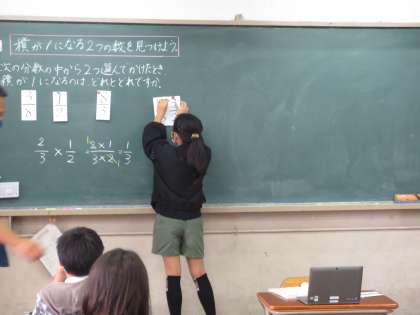 積が1になる2つの数を見つけよう。
次の分数の中から2つ選んでかけたとき、
積が1になるのは、どれとどれですか。
2/3 × 1/2 = 2×1/3×2 = 1/3
1
1
2